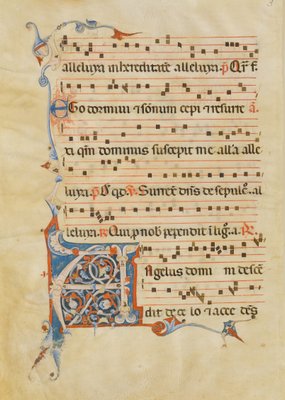 alleluya in hereditate alleluya. p̄ Qr̄ f.
Ego dormiui et sonum cepi et resurre a
xi qm̄ dominus suscepit me all'a alle
luya. p̄ Surrex̄ dn̄s de sepulc̄. al
leluya. Qui p nob pependit ī lig̅. a.
Angelus domi ni descē
dit de ce lo et acce dēs